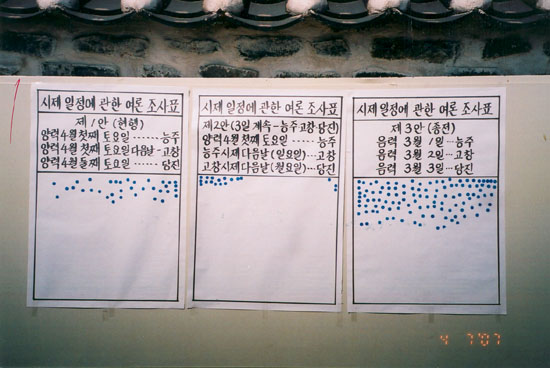 시제 일정에 관한 여론 조사표
제 1안 (현행)
양력4월 첫째 토요일 ------ 능주
양력4월 첫째 토요일 다음날 - 고창
양력4월 둘째 토요일 ------ 당진
시제 일정에 관한 여론 조사표
제2안 (3일 계속 - 능주고창당진)
양력4월 첫째 토요일 ------ 능주
능주시제 다음날 (일요일) --- 고창
고창시제 다음날 (월요일) --- 당진
시제 일정에 관한 여론 조사표
제 3안 (종전)
음력 3월 1일 --- 능주
음력 3월 2일 --- 고창
음력 3월 3일 --- 당진
4 7'07